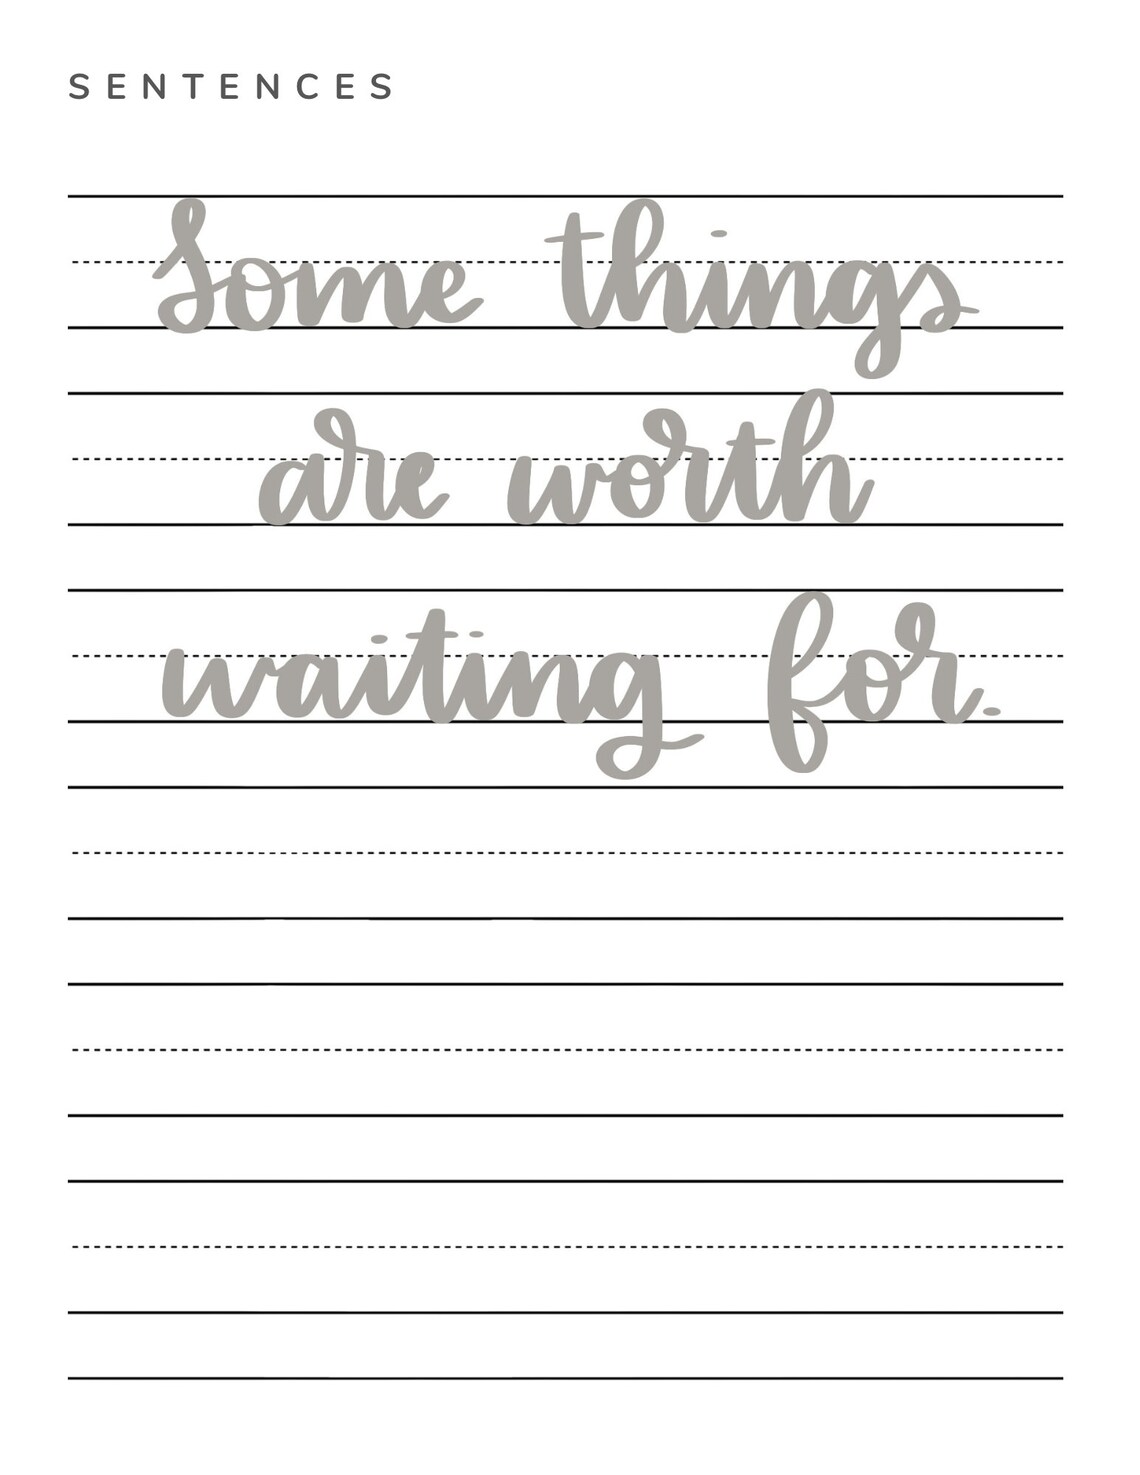 SENTENCES
Some things
are worth
waiting for.